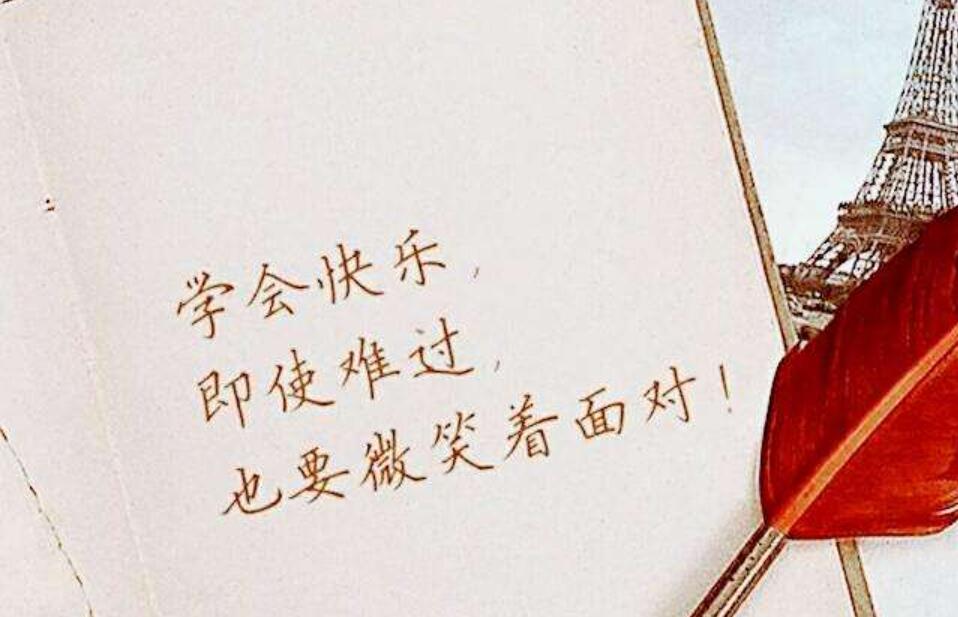 学会快乐,
即使难过,
也要微笑着面对!